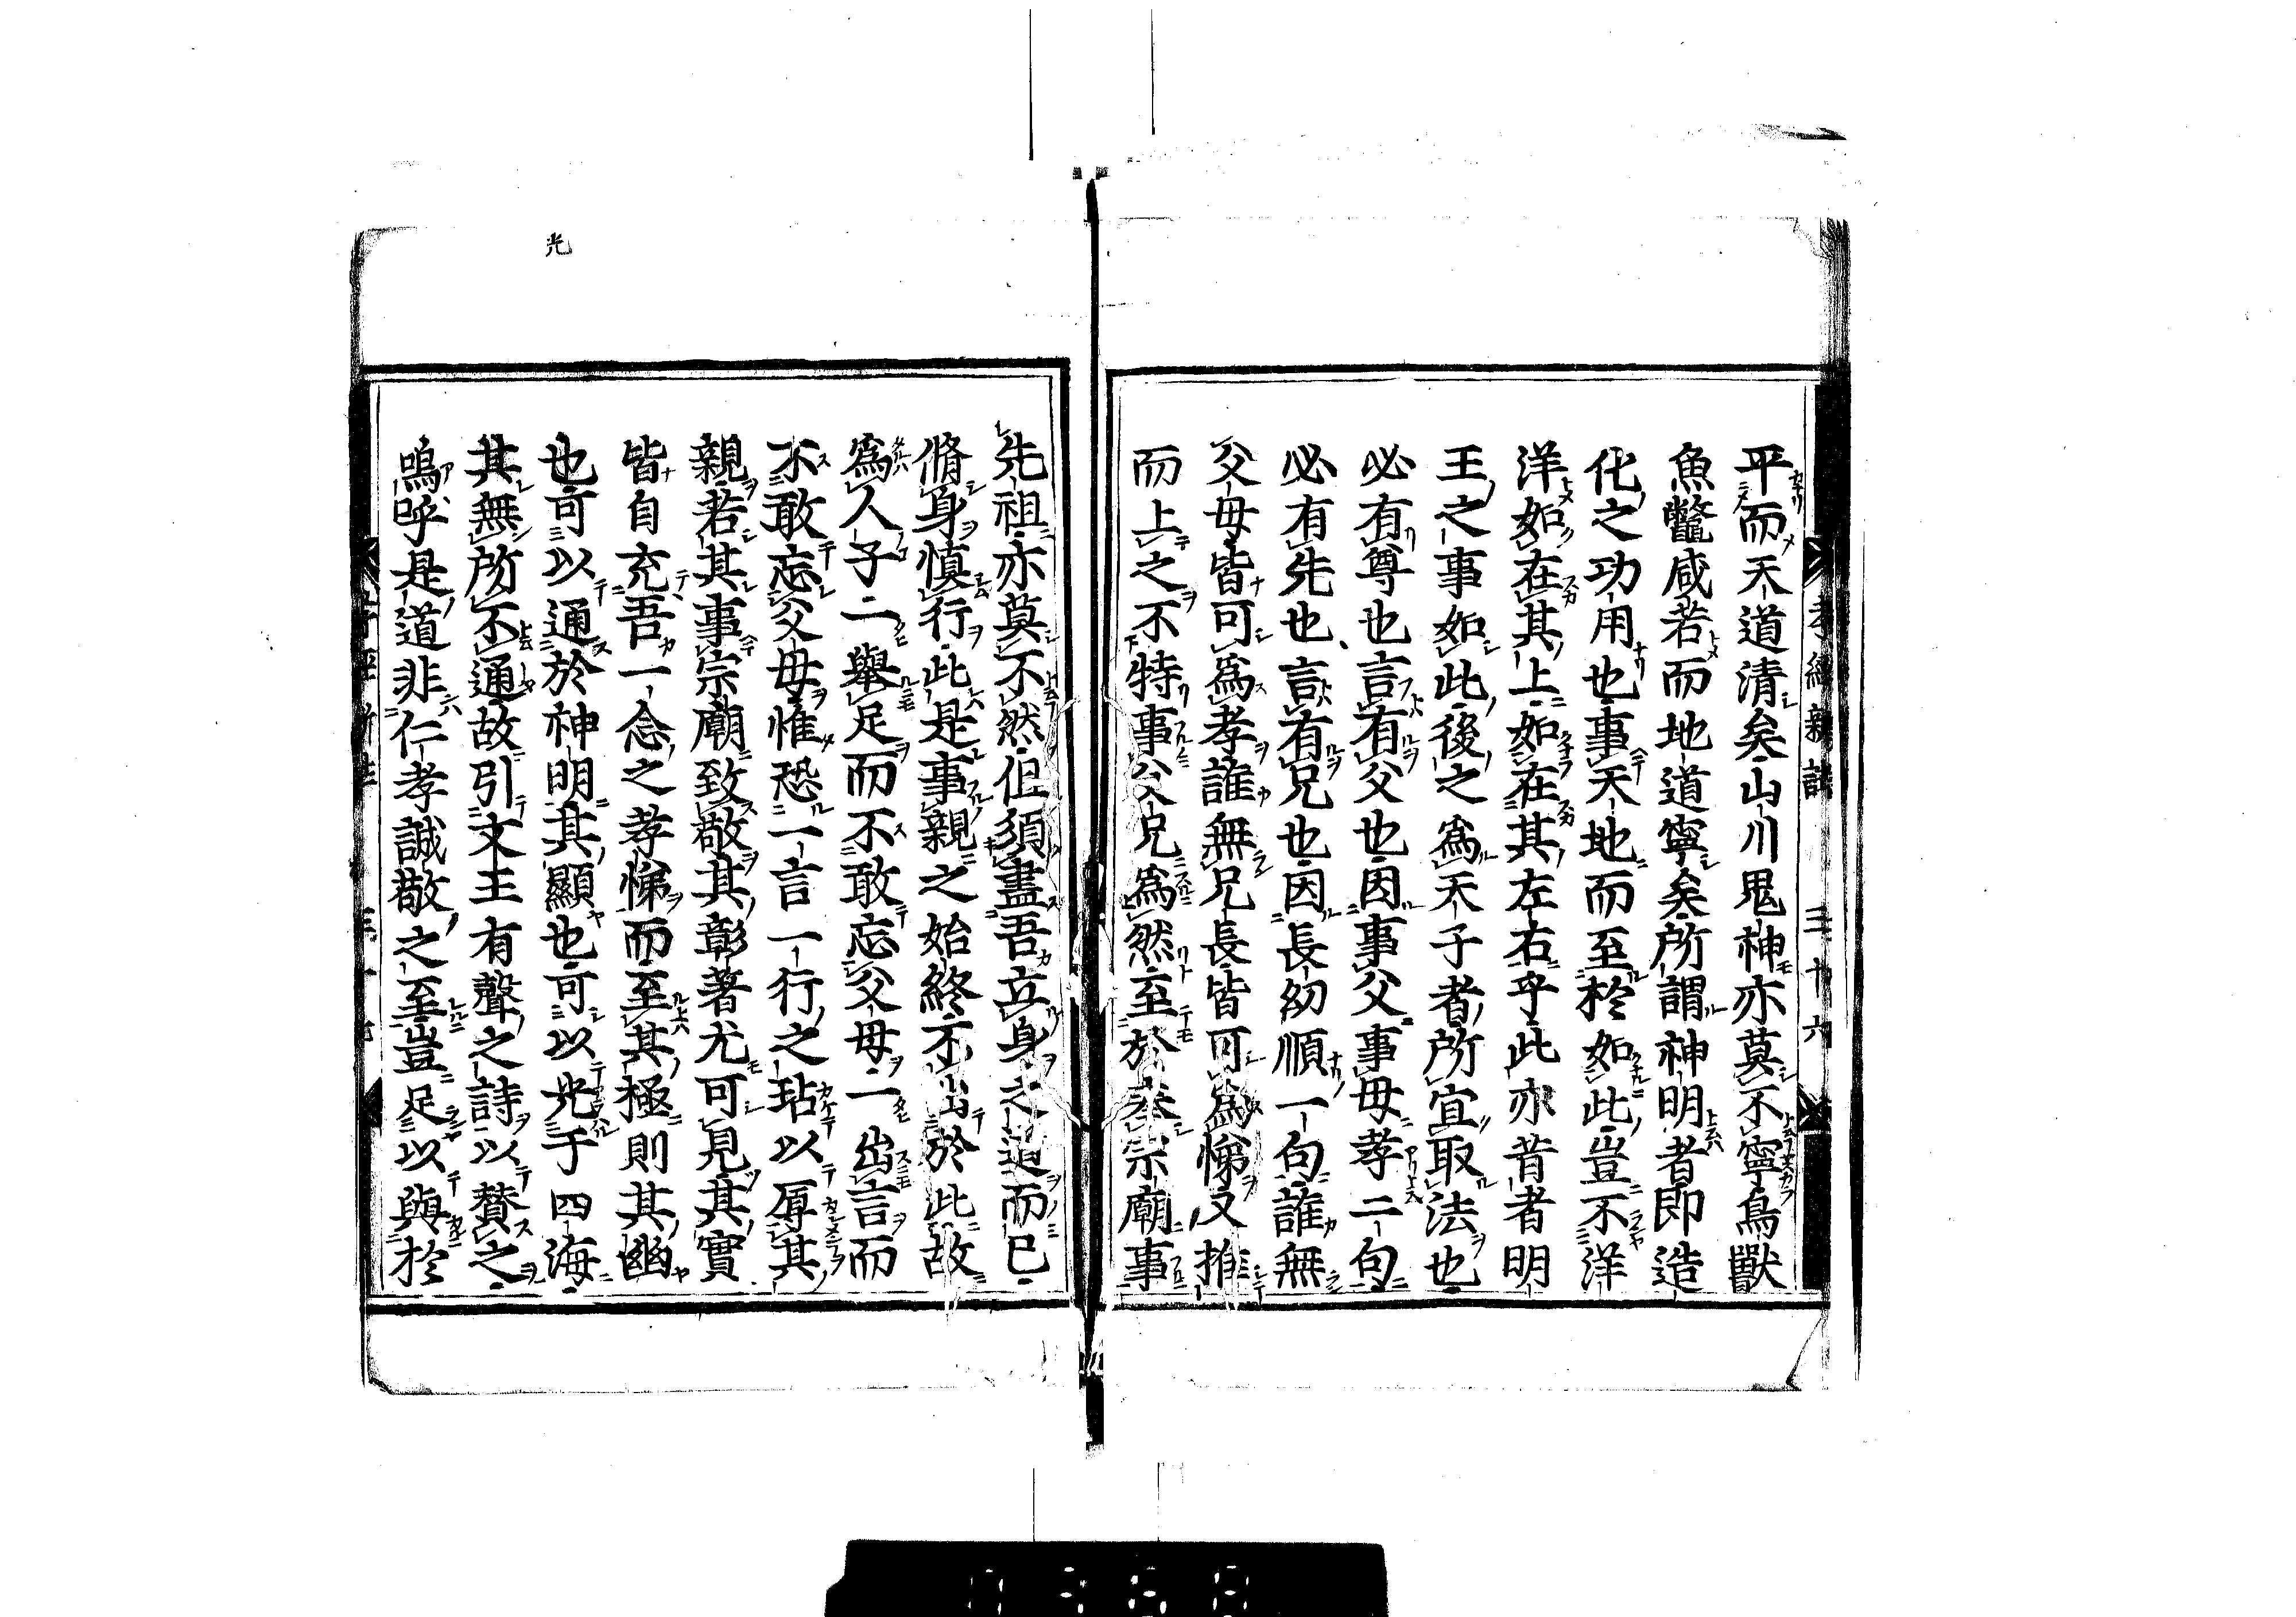 孝經新註 三十六
平而天道清矣山川鬼神亦莫不寧鳥獸
魚鼈咸若而地道寧矣所謂神明者即造
化之功用也事天地而至於如此豈不洋
洋如在其上如在其左右乎此亦昔者明
王之事如此後之爲天子者所宜取法也
必有尊也言有父也因事父事母孝二句
必有先也言有兄也因長幼順一句誰無
父母皆可爲孝誰無兄長皆可爲悌又推
而上之不特事父兄爲然至於奉宗廟事
先祖亦莫不然但須盡吾立身之道而已
脩身慎行此是事親之始終不出於此故
爲人子一舉足而不敢忘父母一出言而
不敢忘父母惟恐一言一行之玷以辱其
親若其事宗廟致敬其彰著尤可見其實
皆自充吾一念之孝悌而至其極則其幽
也可以通於神明其顯也可以光于四海
其無所不通故引文王有聲之詩以贊之
嗚呼是道非仁孝誠敬之至豈足以與於
光